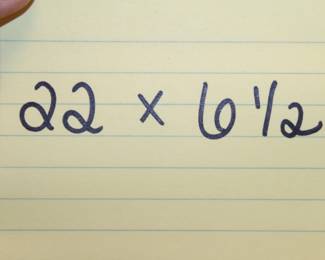 22 x 6 1/2